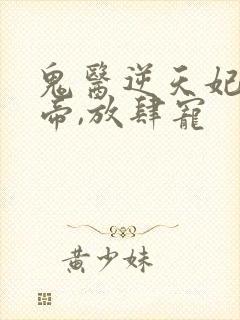 鬼醫逆天妃
帝,放肆寵
黃少妹